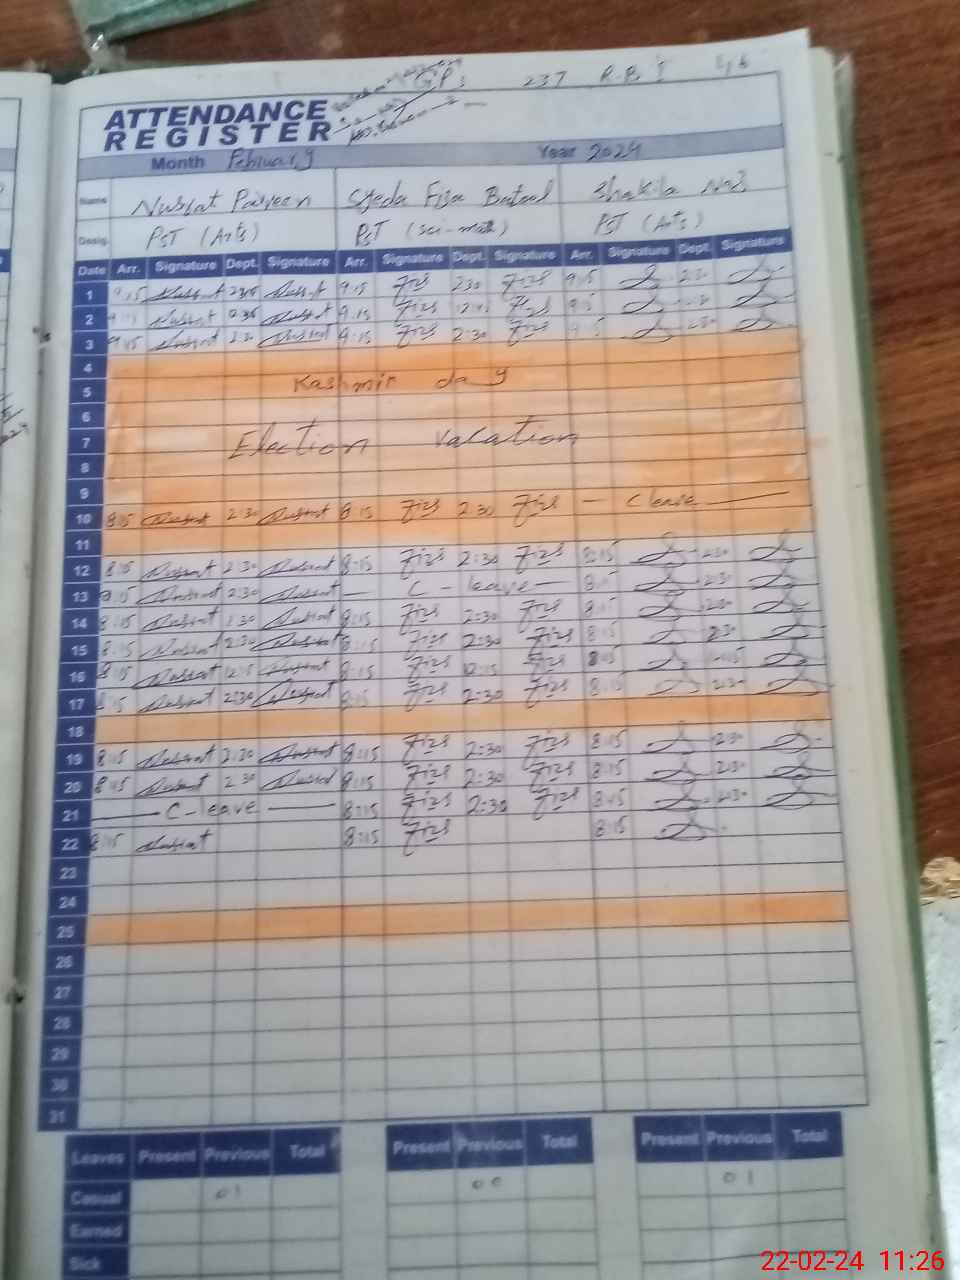 G.P.S 237 R.B 1
ATTENDANCE
REGISTER
Month February Year 2024
Name Nusrat Parveen Syeda Fiza Batool Shakila Naz
Desig. PST (Arts) PST (Sci-math) PST (Arts)
Date Arr. Signature Dept. Signature Arr. Signature Dept. Signature Arr. Signature Dept. Signature
1 9:15 Nusrat Nusrat 9:15 Fiza 2:30 Fiza 9:15 2:30
2 Nusrat Nusrat 9:15 Fiza Fiza 9:15
3 9:15 Nusrat 2:30 Nusrat 9:15 Fiza 2:30 Fiza 9:15 2:30
4
5 Kashmir day
6
7 Election vacation
8
9
10 8:15 Nusrat 2:30 Nusrat 8:15 Fiza 2:30 Fiza — C leave —
11
12 8:15 Nusrat 2:30 Nusrat 8:15 Fiza 2:30 Fiza 8:15 2:30
13 8:15 Nusrat 2:30 Nusrat — C - leave — 8:15 2:30
14 8:15 Nusrat 2:30 Nusrat 8:15 Fiza 2:30 Fiza 8:15 2:30
15 8:15 Nusrat 2:30 Nusrat 8:15 Fiza 2:30 Fiza 8:15 2:30
16 8:15 Nusrat 12:15 Nusrat 8:15 Fiza 12:15 Fiza 8:15 12:15
17 8:15 Nusrat 2:30 Nusrat 8:15 Fiza 2:30 Fiza 8:15 2:30
18
19 8:15 Nusrat 2:30 Nusrat 8:15 Fiza 2:30 Fiza 8:15 2:30
20 8:15 Nusrat 2:30 Nusrat 8:15 Fiza 2:30 Fiza 8:15 2:30
21 — C-leave — 8:15 Fiza 2:30 Fiza 8:15 2:30
22 8:15 Nusrat 8:15 Fiza 8:15
23
24
25
26
27
28
29
30
31
Leaves Present Previous Total Present Previous Total Present Previous Total
Casual 01 00 01
Earned
Sick
22-02-24 11:26